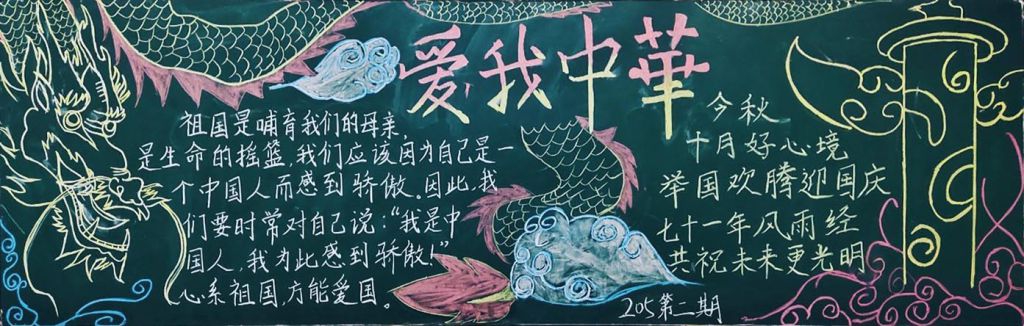 爱我中華
祖国是哺育我们的母亲,
是生命的摇篮,我们应该因为自己是一
个中国人而感到骄傲。因此,我
们要时常对自己说:“我是中
国人,我为此感到骄傲!”
心系祖国,方能爱国。
今秋
十月好心境
举国欢腾迎国庆
七十一年风雨经
共祝未来更光明
205第二期